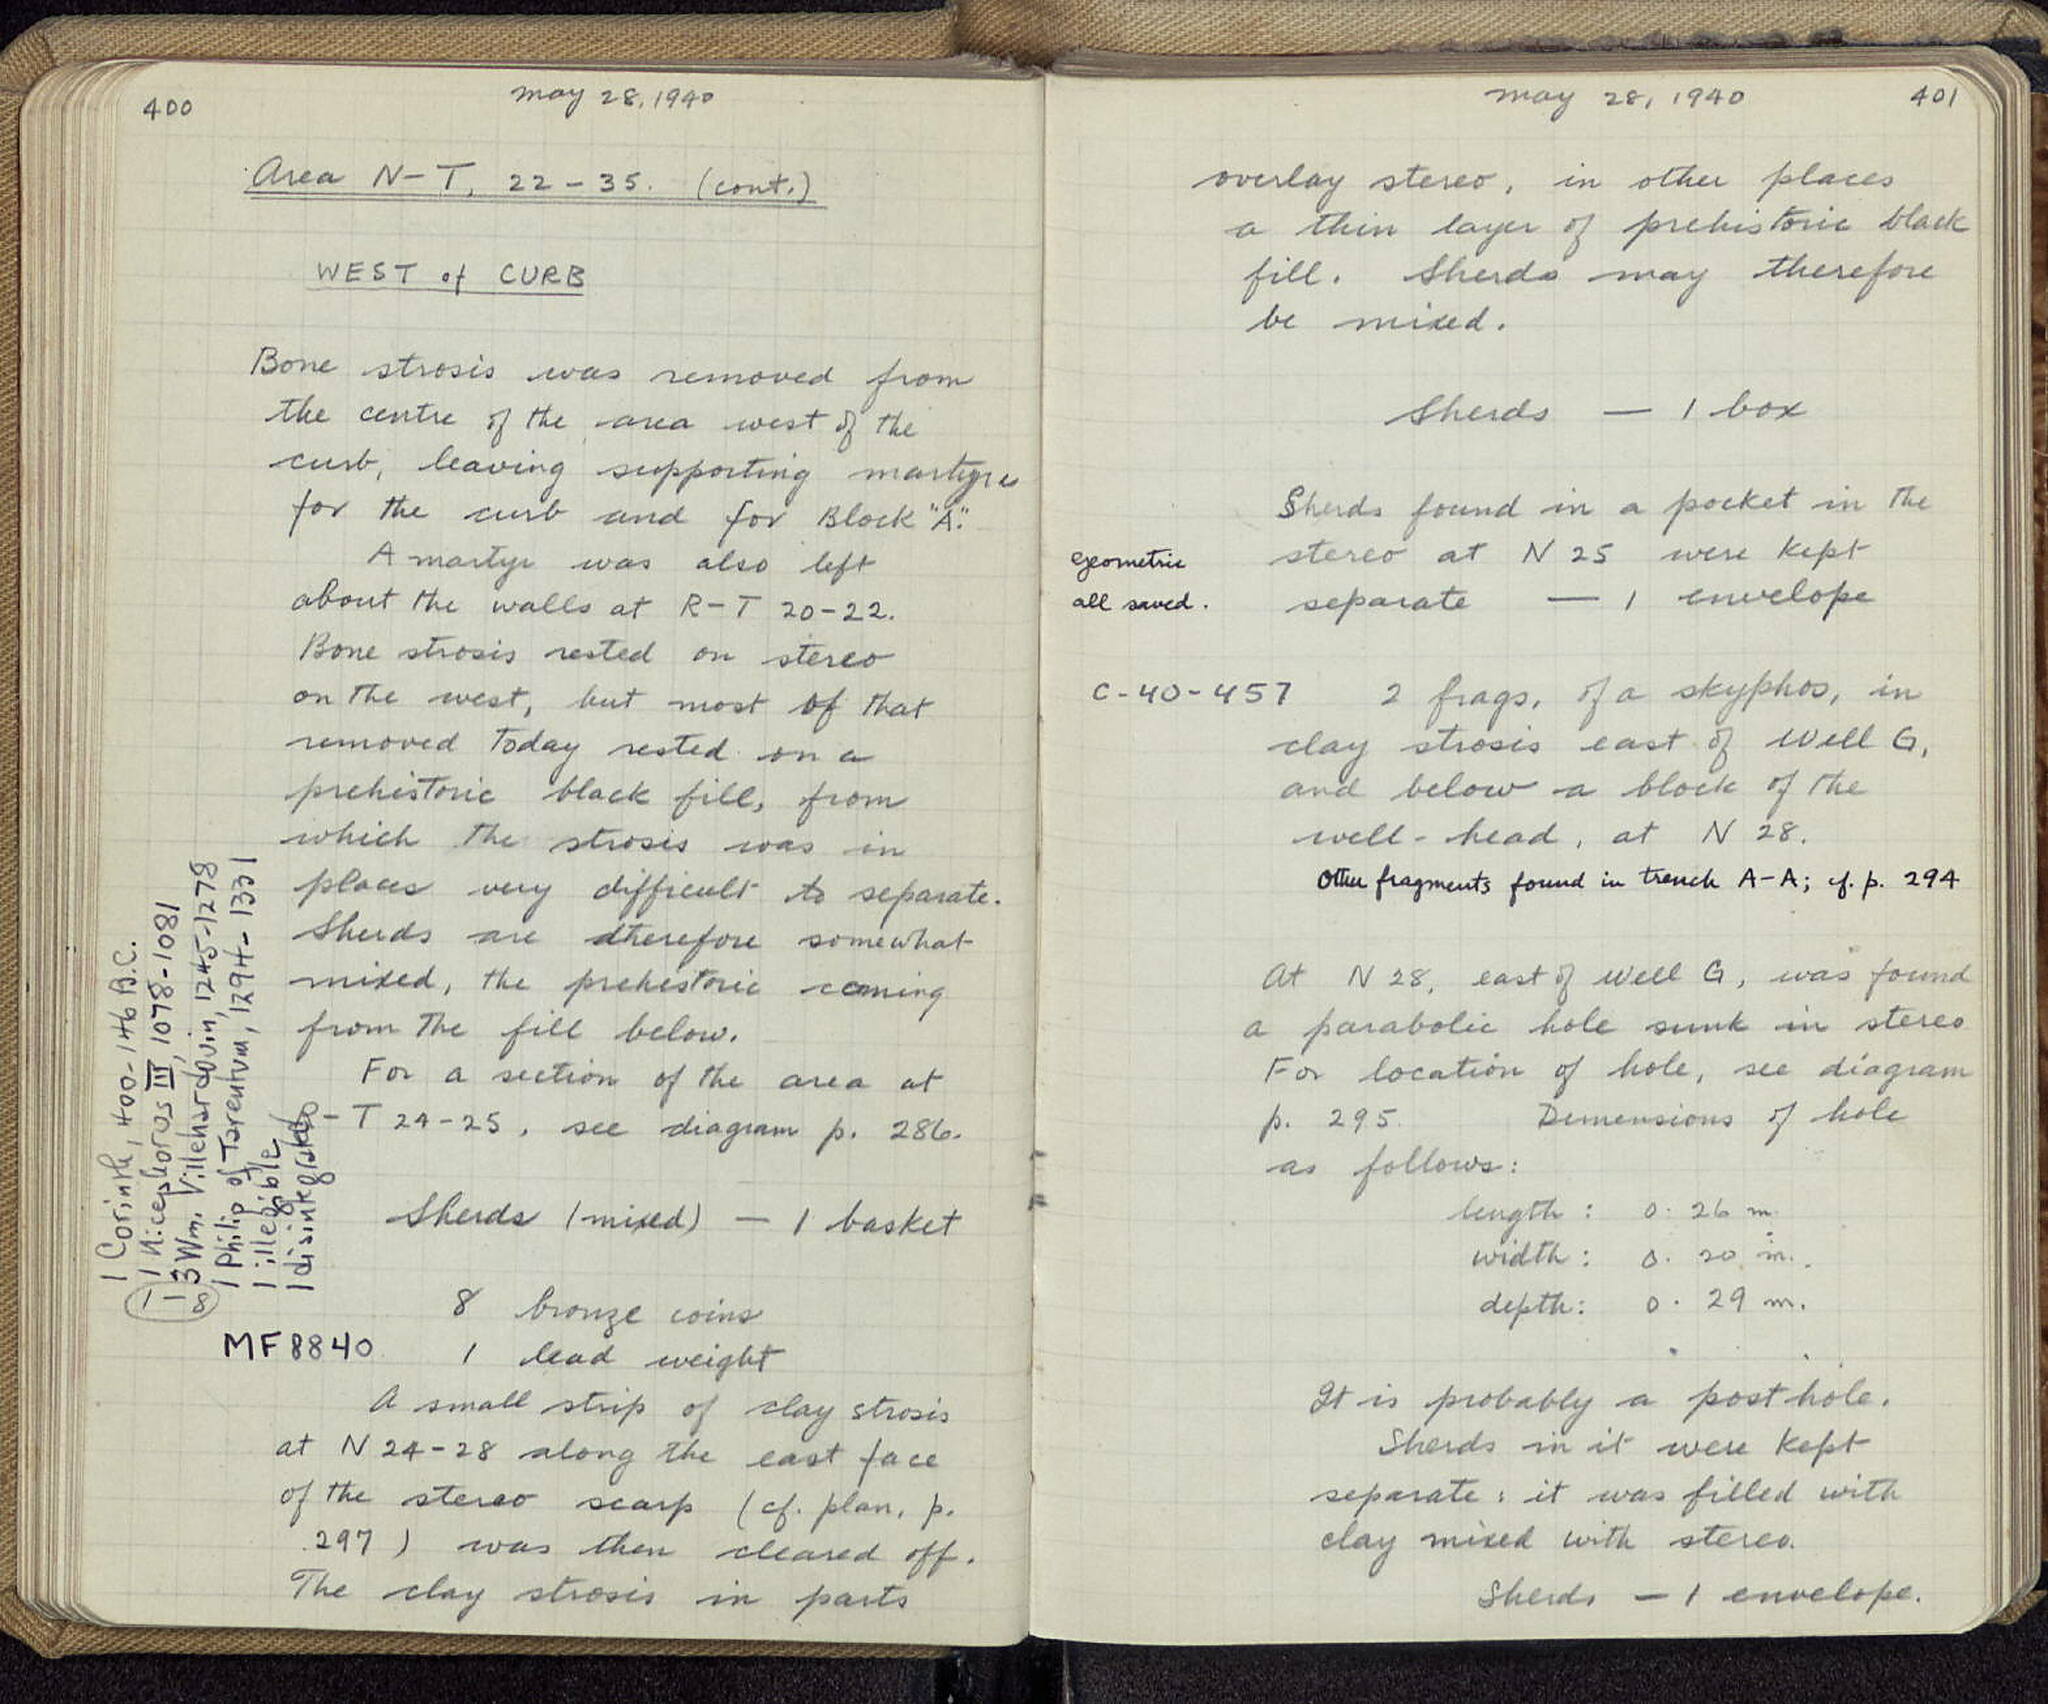 400
May 28, 1940
Area N-T, 22-35. (cont.)
WEST of CURB
Bone strosis was removed from
the centre of the area west of the
curb, leaving supporting martyrs
for the curb and for Block "A".
A martyr was also left
about the walls at R-T 20-22.
Bone strosis rested on stereo
on the west, but most of that
removed today rested on a
prehistoric black fill, from
which the strosis was in
places very difficult to separate.
Sherds are therefore somewhat
mixed, the prehistoric coming
from the fill below.
For a section of the area at
-T 24-25, see diagram p. 286.
Sherds (mixed) — 1 basket
8 bronze coins
MF 8840 1 lead weight
1 Corinth, 400-146 B.C.
1 Nicephoros III, 1078-1081
3 Wm. Villehardouin, 1245-1278
1 Philip of Tarentum, 1294-1331
1 illegible
1 disintegrated
8
A small strip of clay strosis
at N 24-28 along the east face
of the stereo scarp (cf. plan, p.
297) was then cleared off.
The clay strosis in parts
May 28, 1940
401
overlay stereo, in other places
a thin layer of prehistoric black
fill. Sherds may therefore
be mixed.
Sherds — 1 box
Sherds found in a pocket in the
stereo at N 25 were kept
separate — 1 envelope
geometric
all saved.
C-40-457 2 frags, of a skyphos, in
clay strosis east of Well G,
and below a block of the
well-head, at N 28.
Other fragments found in trench A-A; cf. p. 294
At N 28, east of Well G, was found
a parabolic hole sunk in stereo
For location of hole, see diagram
p. 295. Dimensions of hole
as follows:
length: 0.26 m.
width: 0.20 m.
depth: 0.29 m.
It is probably a post hole.
Sherds in it were kept
separate: it was filled with
clay mixed with stereo.
Sherds — 1 envelope.